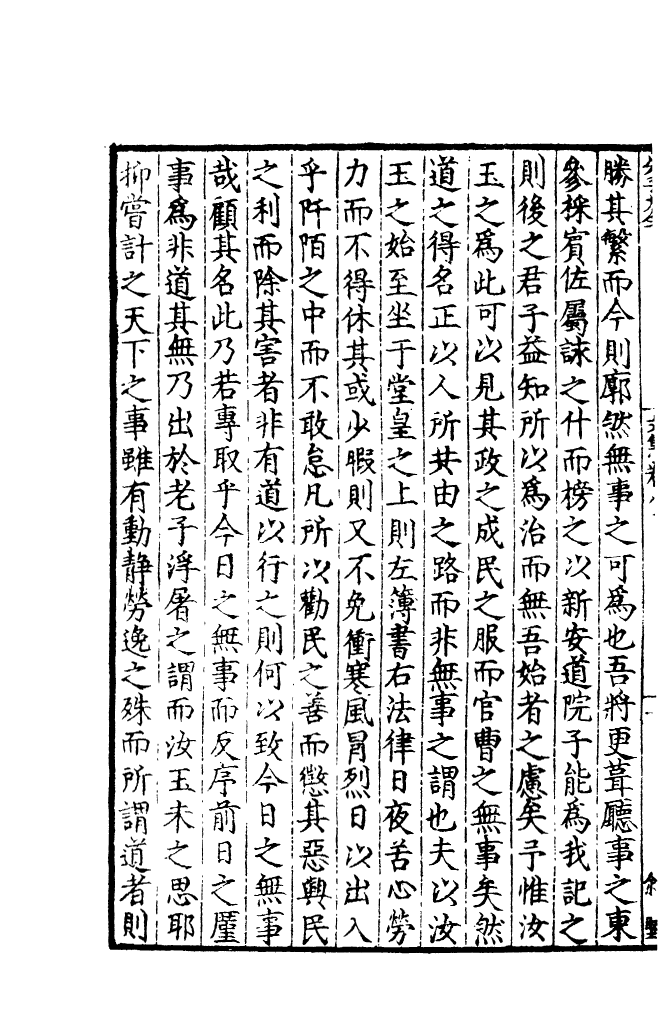 勝其繁而今則廓然無事之可為也吾將更葺聽事之東
參採賓佐屬諫之什而榜之以新安道院子能為我記之
則後之君子益知所以為治而無吾始者之慮矣予惟汝
玉之為此可以見其政之成民之服而官曹之無事矣然
道之得名正以人所共由之路而非無事之謂也夫以汝
玉之始至坐于堂皇之上則左簿書右法律日夜苦心勞
力而不得休其或少暇則又不免衝寒風冒烈日以出入
乎阡陌之中而不敢怠凡所以勸民之善而懲其惡興民
之利而除其害者非有道以行之則何以致今日之無事
哉顧其名此乃若專取乎今日之無事而反序前日之
事為非道其無乃出於老子浮屠之謂而汝玉未之思耶
抑嘗計之天下之事雖有動静勞逸之殊而所謂道者則